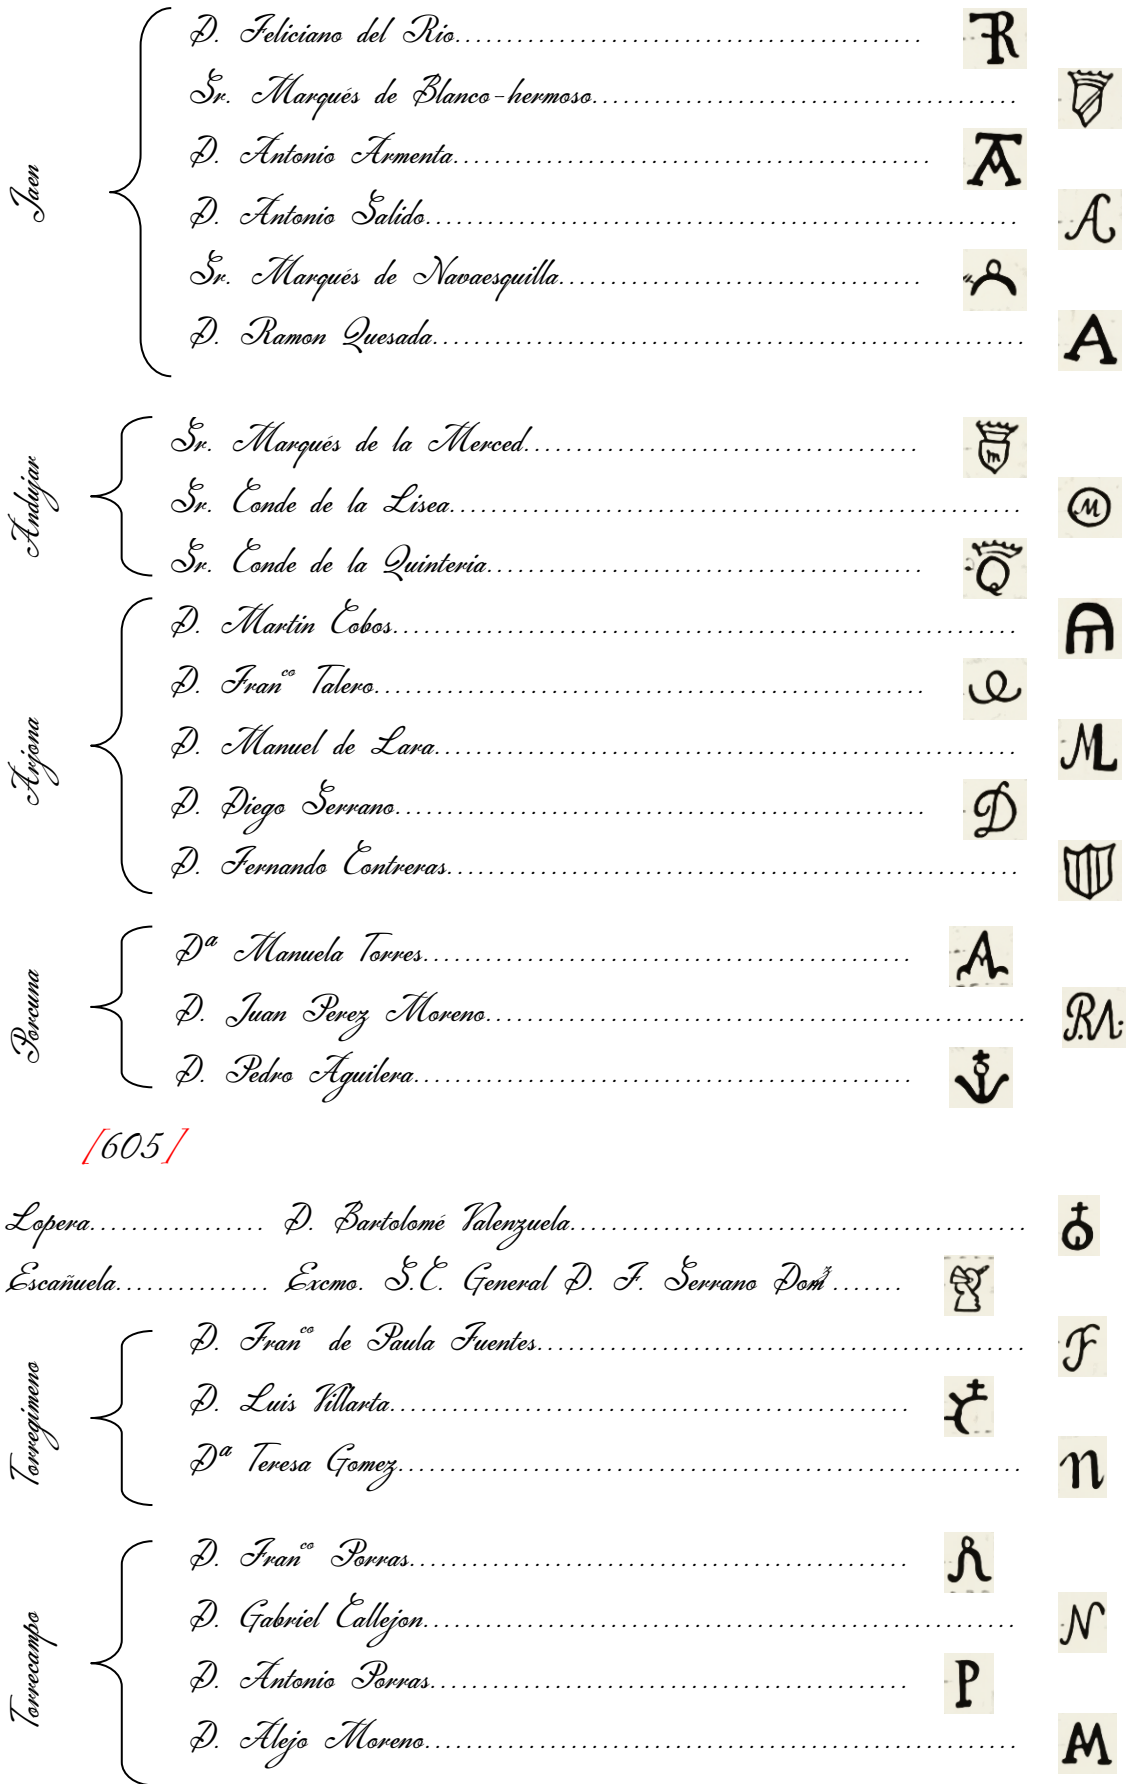 Jaen
D. Feliciano del Rio
Sr. Marqués de Blanco-hermoso
D. Antonio Armenta
D. Antonio Salido
Sr. Marqués de Navaesquilla
D. Ramon Quesada
Andujar
Sr. Marqués de la Merced
Sr. Conde de la Lisea
Sr. Conde de la Quinteria
Arjona
D. Martin Cobos
D. Franco Talero
D. Manuel de Lara
D. Diego Serrano
D. Fernando Contreras
Porcuna
Dª Manuela Torres
D. Juan Perez Moreno
D. Pedro Aguilera
[605]
Lopera D. Bartolomé Valenzuela
Escañuela Excmo. S.C. General D. F. Serrano Domz
Torregimeno
D. Franco de Paula Fuentes
D. Luis Villarta
Dª Teresa Gomez
Torrecampo
D. Franco Porras
D. Gabriel Callejon
D. Antonio Porras
D. Alejo Moreno